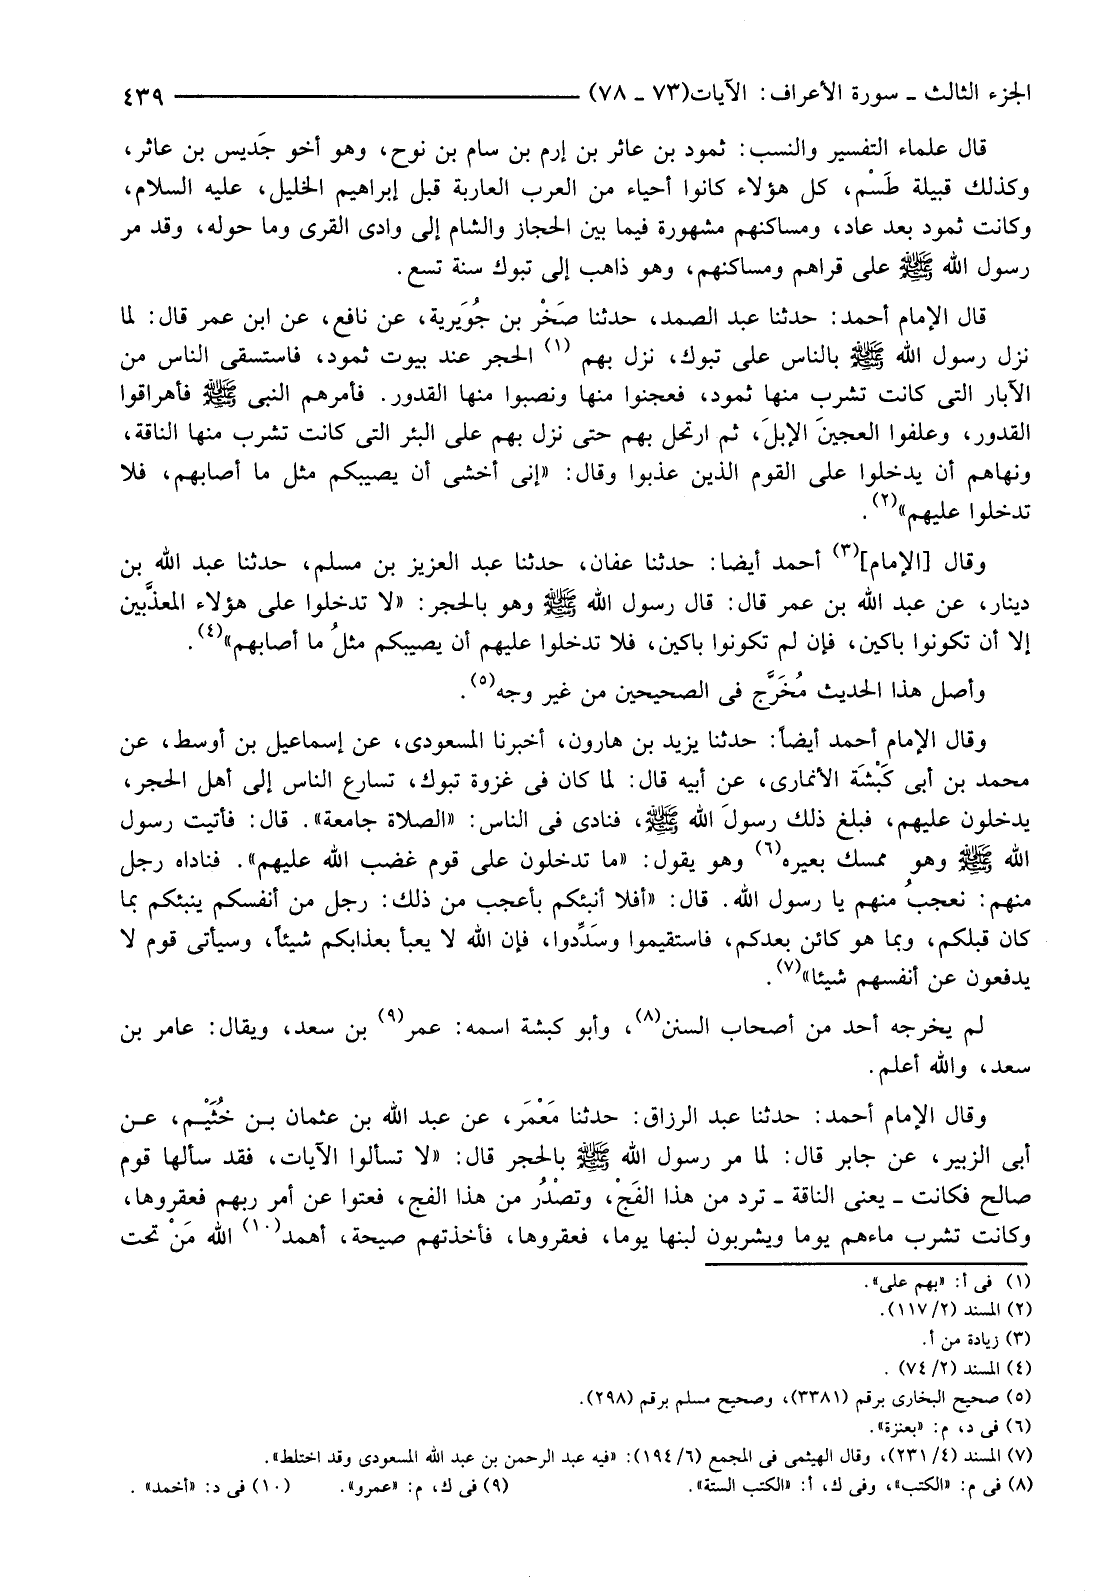 الجزء الثالث ـ سورة الأعراف: الآيات(٧٣ ـ ٧٨) ٤٣٩
قال علماء التفسير والنسب: ثمود بن عاثر بن إرم بن سام بن نوح، وهو أخو جَديس بن عاثر،
وكذلك قبيلة طَسْم، كل هؤلاء كانوا أحياء من العرب العاربة قبل إبراهيم الخليل، عليه السلام،
وكانت ثمود بعد عاد، ومساكنهم مشهورة فيما بين الحجاز والشام إلى وادى القرى وما حوله، وقد مر
رسول الله ﷺ على قراهم ومساكنهم، وهو ذاهب إلى تبوك سنة تسع.
قال الإمام أحمد: حدثنا عبد الصمد، حدثنا صَخْر بن جُوَيرية، عن نافع، عن ابن عمر قال: لما
نزل رسول الله ﷺ بالناس على تبوك، نزل بهم (١) الحجر عند بيوت ثمود، فاستسقى الناس من
الآبار التى كانت تشرب منها ثمود، فعجنوا منها ونصبوا منها القدور. فأمرهم النبى ﷺ فأهراقوا
القدور، وعلفوا العجينَ الإبلَ، ثم ارتحل بهم حتى نزل بهم على البئر التى كانت تشرب منها الناقة،
ونهاهم أن يدخلوا على القوم الذين عذبوا وقال: «إنى أخشى أن يصيبكم مثل ما أصابهم، فلا
تدخلوا عليهم»(٢).
وقال [الإمام](٣) أحمد أيضا: حدثنا عفان، حدثنا عبد العزيز بن مسلم، حدثنا عبد الله بن
دينار، عن عبد الله بن عمر قال: قال رسول الله ﷺ وهو بالحجر: «لا تدخلوا على هؤلاء المعذَّبين
إلا أن تكونوا باكين، فإن لم تكونوا باكين، فلا تدخلوا عليهم أن يصيبكم مثلُ ما أصابهم»(٤).
وأصل هذا الحديث مُخَرَّج فى الصحيحين من غير وجه(٥).
وقال الإمام أحمد أيضاً: حدثنا يزيد بن هارون، أخبرنا المسعودى، عن إسماعيل بن أوسط، عن
محمد بن أبى كَبْشَة الأنمارى، عن أبيه قال: لما كان فى غزوة تبوك، تسارع الناس إلى أهل الحجر،
يدخلون عليهم، فبلغ ذلك رسولَ الله ﷺ، فنادى فى الناس: «الصلاة جامعة». قال: فأتيت رسول
الله ﷺ وهو ممسك بعيره(٦) وهو يقول: «ما تدخلون على قوم غضب الله عليهم». فناداه رجل
منهم: نعجبُ منهم يا رسول الله. قال: «أفلا أنبئكم بأعجب من ذلك: رجل من أنفسكم ينبئكم بما
كان قبلكم، وبما هو كائن بعدكم، فاستقيموا وسَدِّدوا، فإن الله لا يعبأ بعذابكم شيئاً، وسيأتى قوم لا
يدفعون عن أنفسهم شيئا»(٧).
لم يخرجه أحد من أصحاب السنن(٨)، وأبو كبشة اسمه: عمر(٩) بن سعد، ويقال: عامر بن
سعد، والله أعلم.
وقال الإمام أحمد: حدثنا عبد الرزاق: حدثنا مَعْمَر، عن عبد الله بن عثمان بن خُثَيْم، عن
أبى الزبير، عن جابر قال: لما مر رسول الله ﷺ بالحجر قال: «لا تسألوا الآيات، فقد سألها قوم
صالح فكانت ـ يعنى الناقة ـ ترد من هذا الفَجْ، وتصْدُر من هذا الفج، فعتوا عن أمر ربهم فعقروها،
وكانت تشرب ماءهم يوما ويشربون لبنها يوما، فعقروها، فأخذتهم صيحة، أهمد(١٠) الله مَنْ تحت
(١) فى أ: «بهم على».
(٢) المسند (١١٧/٢).
(٣) زيادة من أ.
(٤) المسند (٧٤/٢) .
(٥) صحيح البخارى برقم (٣٣٨١)، وصحيح مسلم برقم (٢٩٨).
(٦) فى د، م: «بعنزة».
(٧) المسند (٢٣١/٤)، وقال الهيثمى فى المجمع (١٩٤/٦): «فيه عبد الرحمن بن عبد الله المسعودى وقد اختلط».
(٨) فى م: «الكتب»، وفى ك، أ: «الكتب الستة». (٩) فى ك، م: «عمرو». (١٠) فى د: «أخمد» .